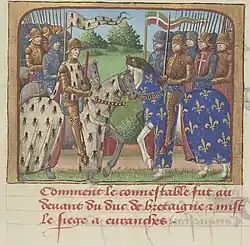 Comment le connestable fut au
deuant du duc de bretaigne z mist
le siege a euranches